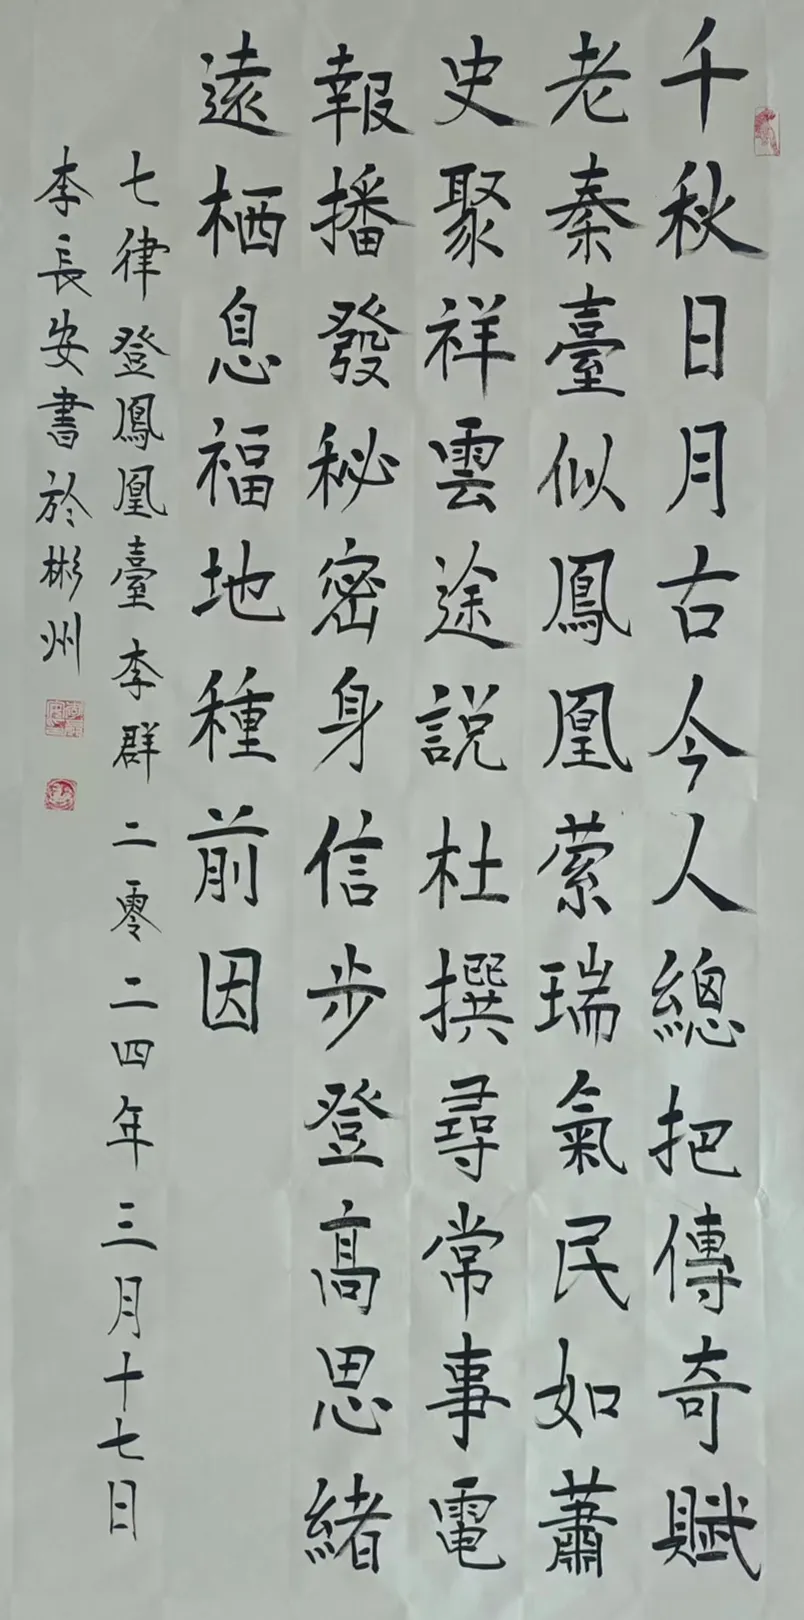 千秋日月古今人總把傳奇賦
老秦臺似鳳凰縈瑞氣民如蕭
史聚祥雲途說杜撰尋常事電
報播發秘密身信步登高思緒
遠栖息福地種前因
七律登鳳凰臺李群二零二四年三月十七日
李長安書於彬州